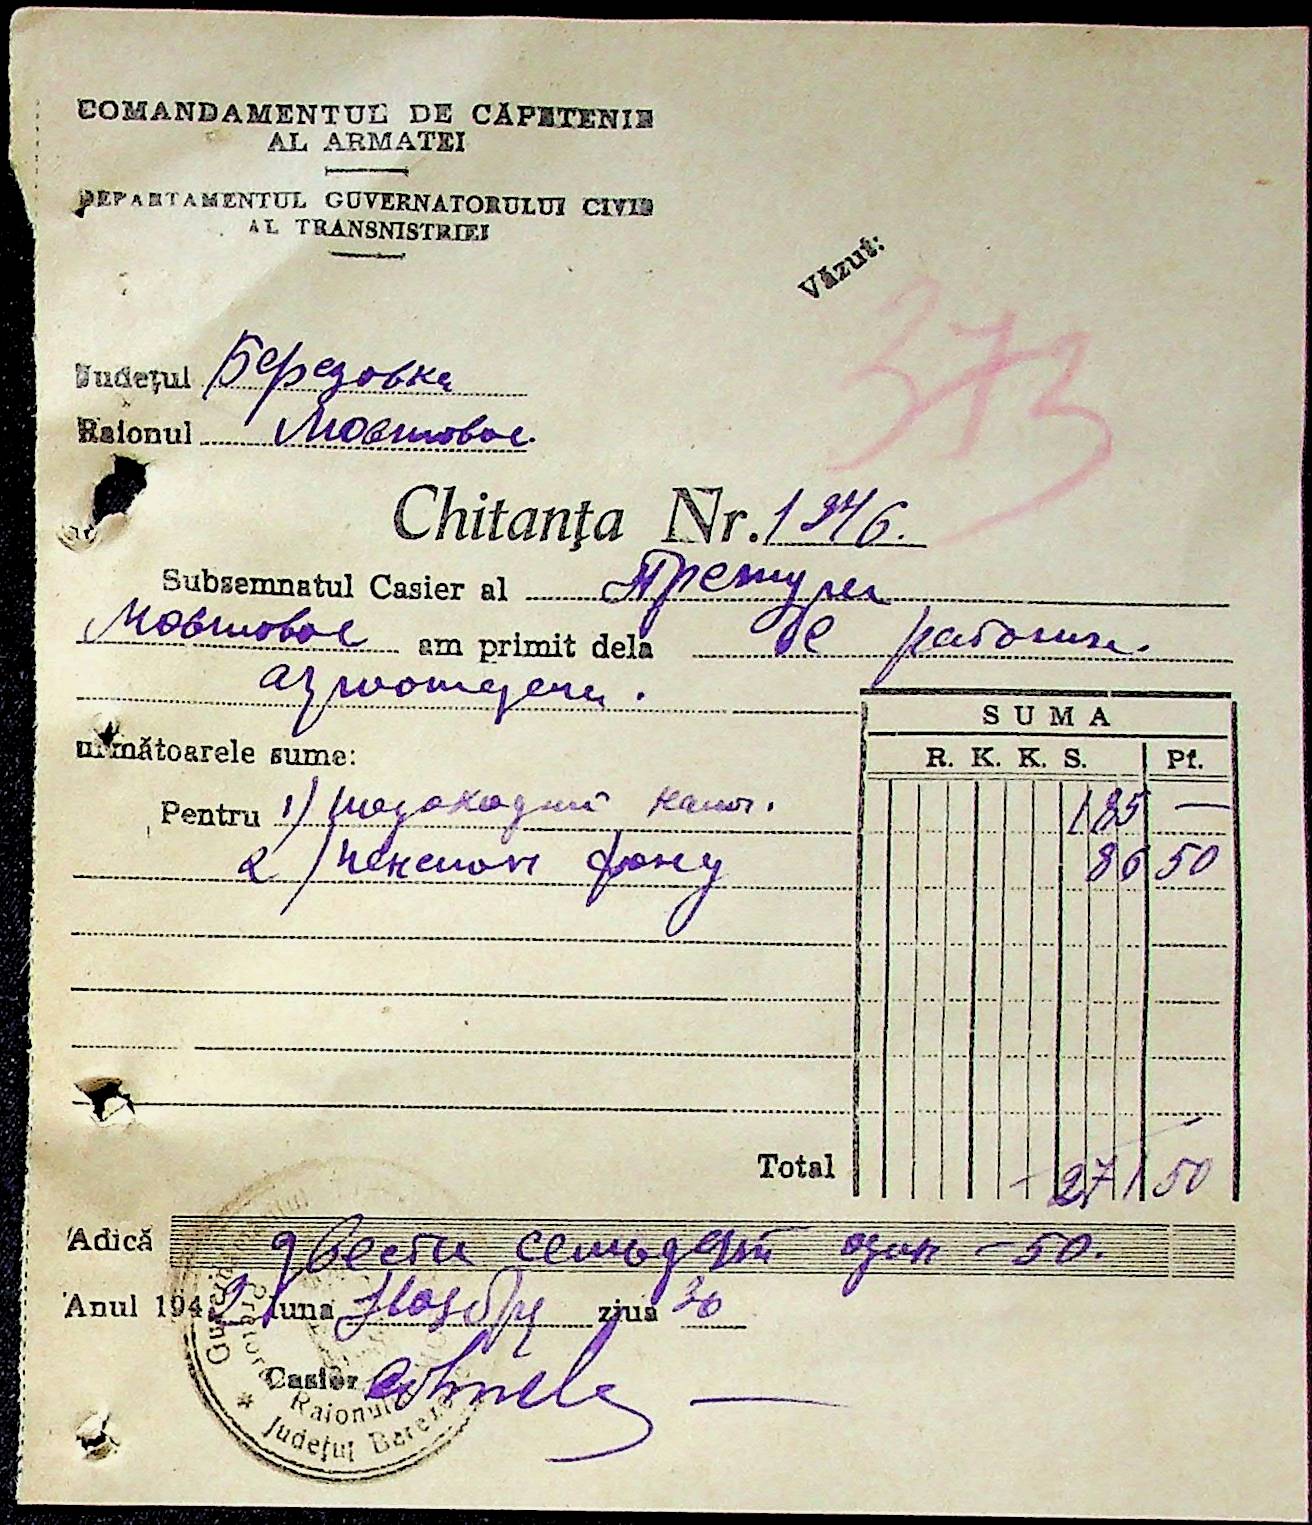 COMANDAMENTUL DE CĂPETENIE
AL ARMATEI
DEPARTAMENTUL GUVERNATORULUI CIVIL
AL TRANSNISTRIEI
Văzut:
373
Județul Березовка
Raionul Мостовое
Chitanța Nr. 1246.
Subsemnatul Casier al Претуры
Мостовое am primit dela с рабочих
агроотдела.
următoarele sume:
SUMA
R. K. K. S. Pf.
Pentru 1) Подоходний налог. 185 —
2) пенсион фонд 86 50
Total 271 50
Adică двести семьдесят один - 50.
Anul 1942 luna Ноябрь ziua 30
Casier
Guvernământul
Pretora Raionului
* Județul Berezo